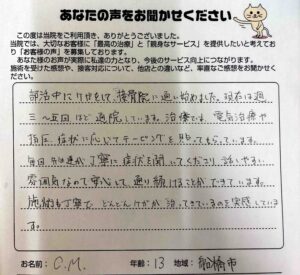 あなたの声をお聞かせください
この度は当院をご利用頂き、ありがとうございます。
当院では、大切なお客様に「最高の治療」と「親身なサービス」を提供したいと考えており「お客様の声」を募集しております。
あなた様のお声が実際に私達の力となり、今後のサービス向上につながります。
施術を受けた感想や、接客対応について、他店との違いなど、率直なご感想をお聞かせください。
部活中にケガをして、接骨院に通い始めました。現在は週
三〜五回ほど通院しています。治療では、電気治療や
指圧、症状に応じてテーピングを貼ってもらっています。
毎回先生達が丁寧に症状を聞いてくださり、話しやすい
雰囲気なので安心して通り続けることができています。
施術も丁寧で、どんどんケガが治ってきているのを実感していま
す。
お名前: C.M. 年齢: 13 地域: 船橋市